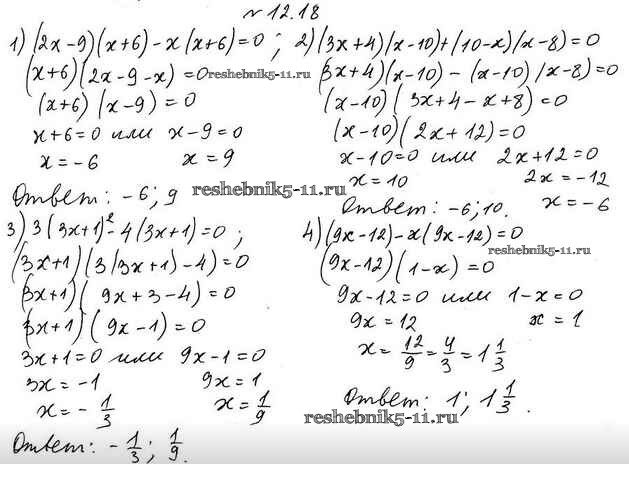 № 12.18
1) (2x-9)(x+6)-x(x+6)=0;
(x+6)(2x-9-x)=0
(x+6)(x-9)=0
x+6=0 или x-9=0
x=-6 x=9
Ответ: -6; 9
2) (3x+4)(x-10)+(10-x)(x-8)=0
(3x+4)(x-10)-(x-10)(x-8)=0
(x-10)(3x+4-x+8)=0
(x-10)(2x+12)=0
x-10=0 или 2x+12=0
x=10 2x=-12
x=-6
Ответ: -6; 10.
reshebnik5-11.ru
reshebnik5-11.ru
3) 3(3x+1)²-4(3x+1)=0;
(3x+1)(3(3x+1)-4)=0
(3x+1)(9x+3-4)=0
(3x+1)(9x-1)=0
3x+1=0 или 9x-1=0
3x=-1 9x=1
x=-1/3 x=1/9
Ответ: -1/3; 1/9.
4) (9x-12)-x(9x-12)=0
reshebnik5-11.ru
(9x-12)(1-x)=0
9x-12=0 или 1-x=0
9x=12 x=1
x=12/9=4/3=1 1/3
Ответ: 1; 1 1/3.
reshebnik5-11.ru